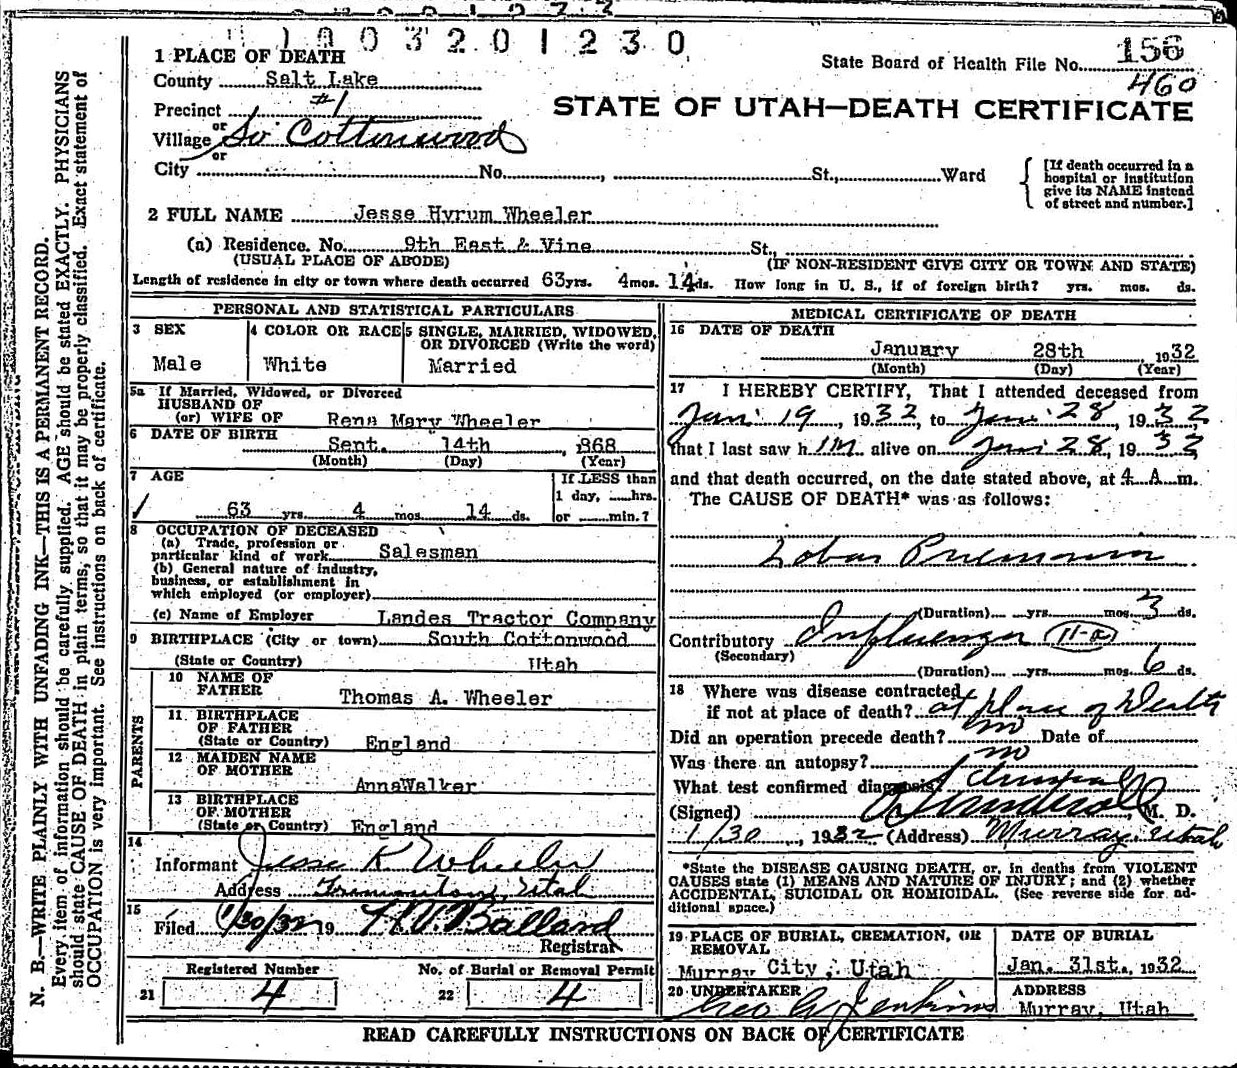 1003201230
1 PLACE OF DEATH
State Board of Health File No. 156
County Salt Lake
460
Precinct #1
STATE OF UTAH—DEATH CERTIFICATE
or
Village So Cottonwood
or
City No. , St., Ward
[If death occurred in a
hospital or institution
give its NAME instead
of street and number.]
2 FULL NAME Jesse Hyrum Wheeler
(a) Residence. No. 9th East & Vine St.,
(USUAL PLACE OF ABODE) (IF NON-RESIDENT GIVE CITY OR TOWN AND STATE)
Length of residence in city or town where death occurred 63 yrs. 4 mos. 14 ds. How long in U. S., if of foreign birth? yrs. mos. ds.
PERSONAL AND STATISTICAL PARTICULARS
3 SEX
Male
4 COLOR OR RACE
White
5 SINGLE, MARRIED, WIDOWED,
OR DIVORCED (Write the word)
Married
5a If Married, Widowed, or Divorced
HUSBAND OF
(or) WIFE OF Rena Mary Wheeler
6 DATE OF BIRTH
Sept. 14th , 868
(Month) (Day) (Year)
7 AGE
63 yrs. 4 mos. 14 ds.
If LESS than
1 day, hrs.
or min.?
8 OCCUPATION OF DECEASED
(a) Trade, profession or
particular kind of work Salesman
(b) General nature of industry,
business, or establishment in
which employed (or employer)
(c) Name of Employer Landes Tractor Company
9 BIRTHPLACE (City or town) South Cottonwood
(State or Country) Utah
PARENTS
10 NAME OF
FATHER Thomas A. Wheeler
11 BIRTHPLACE
OF FATHER
(State or Country) England
12 MAIDEN NAME
OF MOTHER
AnnaWalker
13 BIRTHPLACE
OF MOTHER
(State or Country) England
14
Informant Jesse K Wheeler
Address Tremonton, Utah
15
Filed 1/30/32 19 H.V. Balland
Registrar
Registered Number
21 4
No. of Burial or Removal Permit
22 4
MEDICAL CERTIFICATE OF DEATH
16 DATE OF DEATH
January 28th , 1932
(Month) (Day) (Year)
17 I HEREBY CERTIFY, That I attended deceased from
Jan. 19, 1932, to Jan. 28, 1932
that I last saw h im alive on Jan. 28, 1932
and that death occurred, on the date stated above, at 4 A. m.
The CAUSE OF DEATH* was as follows:
Lobar Pneumonia
(Duration) yrs. mos. 3 ds.
Contributory Influenza 11-a
(Secondary)
(Duration) yrs. mos. 6 ds.
18 Where was disease contracted
if not at place of death? at place of Death
Did an operation precede death? no Date of
Was there an autopsy? no
What test confirmed diagnosis
(Signed) M. D.
1/30, 1932 (Address) Murray, Utah
*State the DISEASE CAUSING DEATH, or, in deaths from VIOLENT
CAUSES state (1) MEANS AND NATURE OF INJURY; and (2) whether
ACCIDENTAL, SUICIDAL OR HOMICIDAL. (See reverse side for ad-
ditional space.)
19 PLACE OF BURIAL, CREMATION, OR
REMOVAL
Murray City, Utah
DATE OF BURIAL
Jan. 31st., 1932
20 UNDERTAKER
Geo A Jenkins
ADDRESS
Murray, Utah
READ CAREFULLY INSTRUCTIONS ON BACK OF CERTIFICATE
N. B.—WRITE PLAINLY WITH UNFADING INK—THIS IS A PERMANENT RECORD.
Every item of information should be carefully supplied. AGE should be stated EXACTLY. PHYSICIANS
should state CAUSE OF DEATH in plain terms, so that it may be properly classified. Exact statement of
OCCUPATION is very important. See instructions on back of certificate.